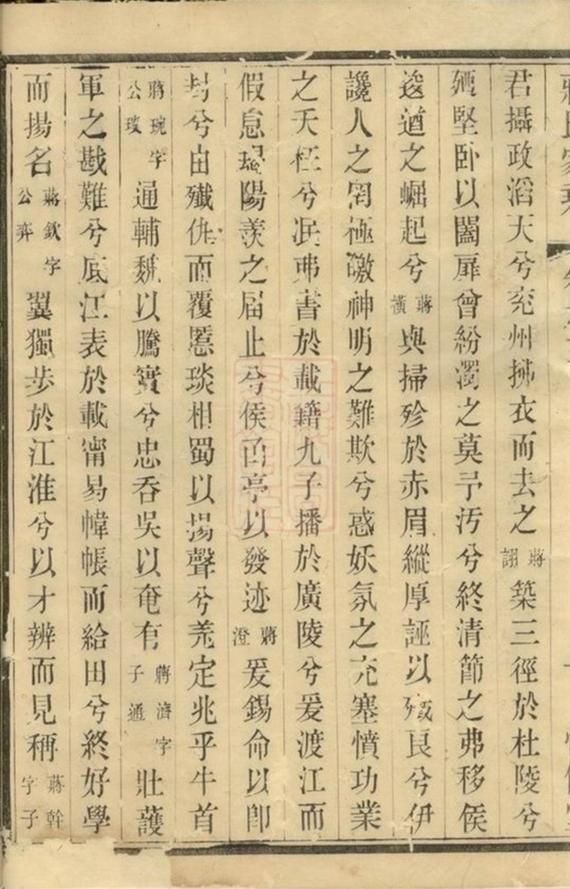 君攝政滔天兮兖州拂衣而去之蔣詡築三徑於杜陵兮
堅臥以闔扉曾紛濁之莫予汚兮終清節之弗移侯
逡遒之崛起兮蔣橫與掃殄於赤眉縱厚誣以殲良兮伊
讒人之罔極瞰神明之難欺兮惑妖氛之充塞憤功業
之夭枉兮泯弗書於載籍九子播於廣陵兮爰渡江而
假息陽羨之届止兮侯亭以發迹蔣澄爰錫命以卽
封兮由殲仇而覆慝琰相蜀以揚聲兮羌定兆乎牛首
蔣琬字公琰通輔魏以騰實兮忠吞吳以奄有蔣濟字子通壯護
軍之戡難兮底江表於載甯易幃帳而給田兮終好學
而揚名蔣欽字公奕翼獨步於江淮兮以才辨而見稱蔣幹字子